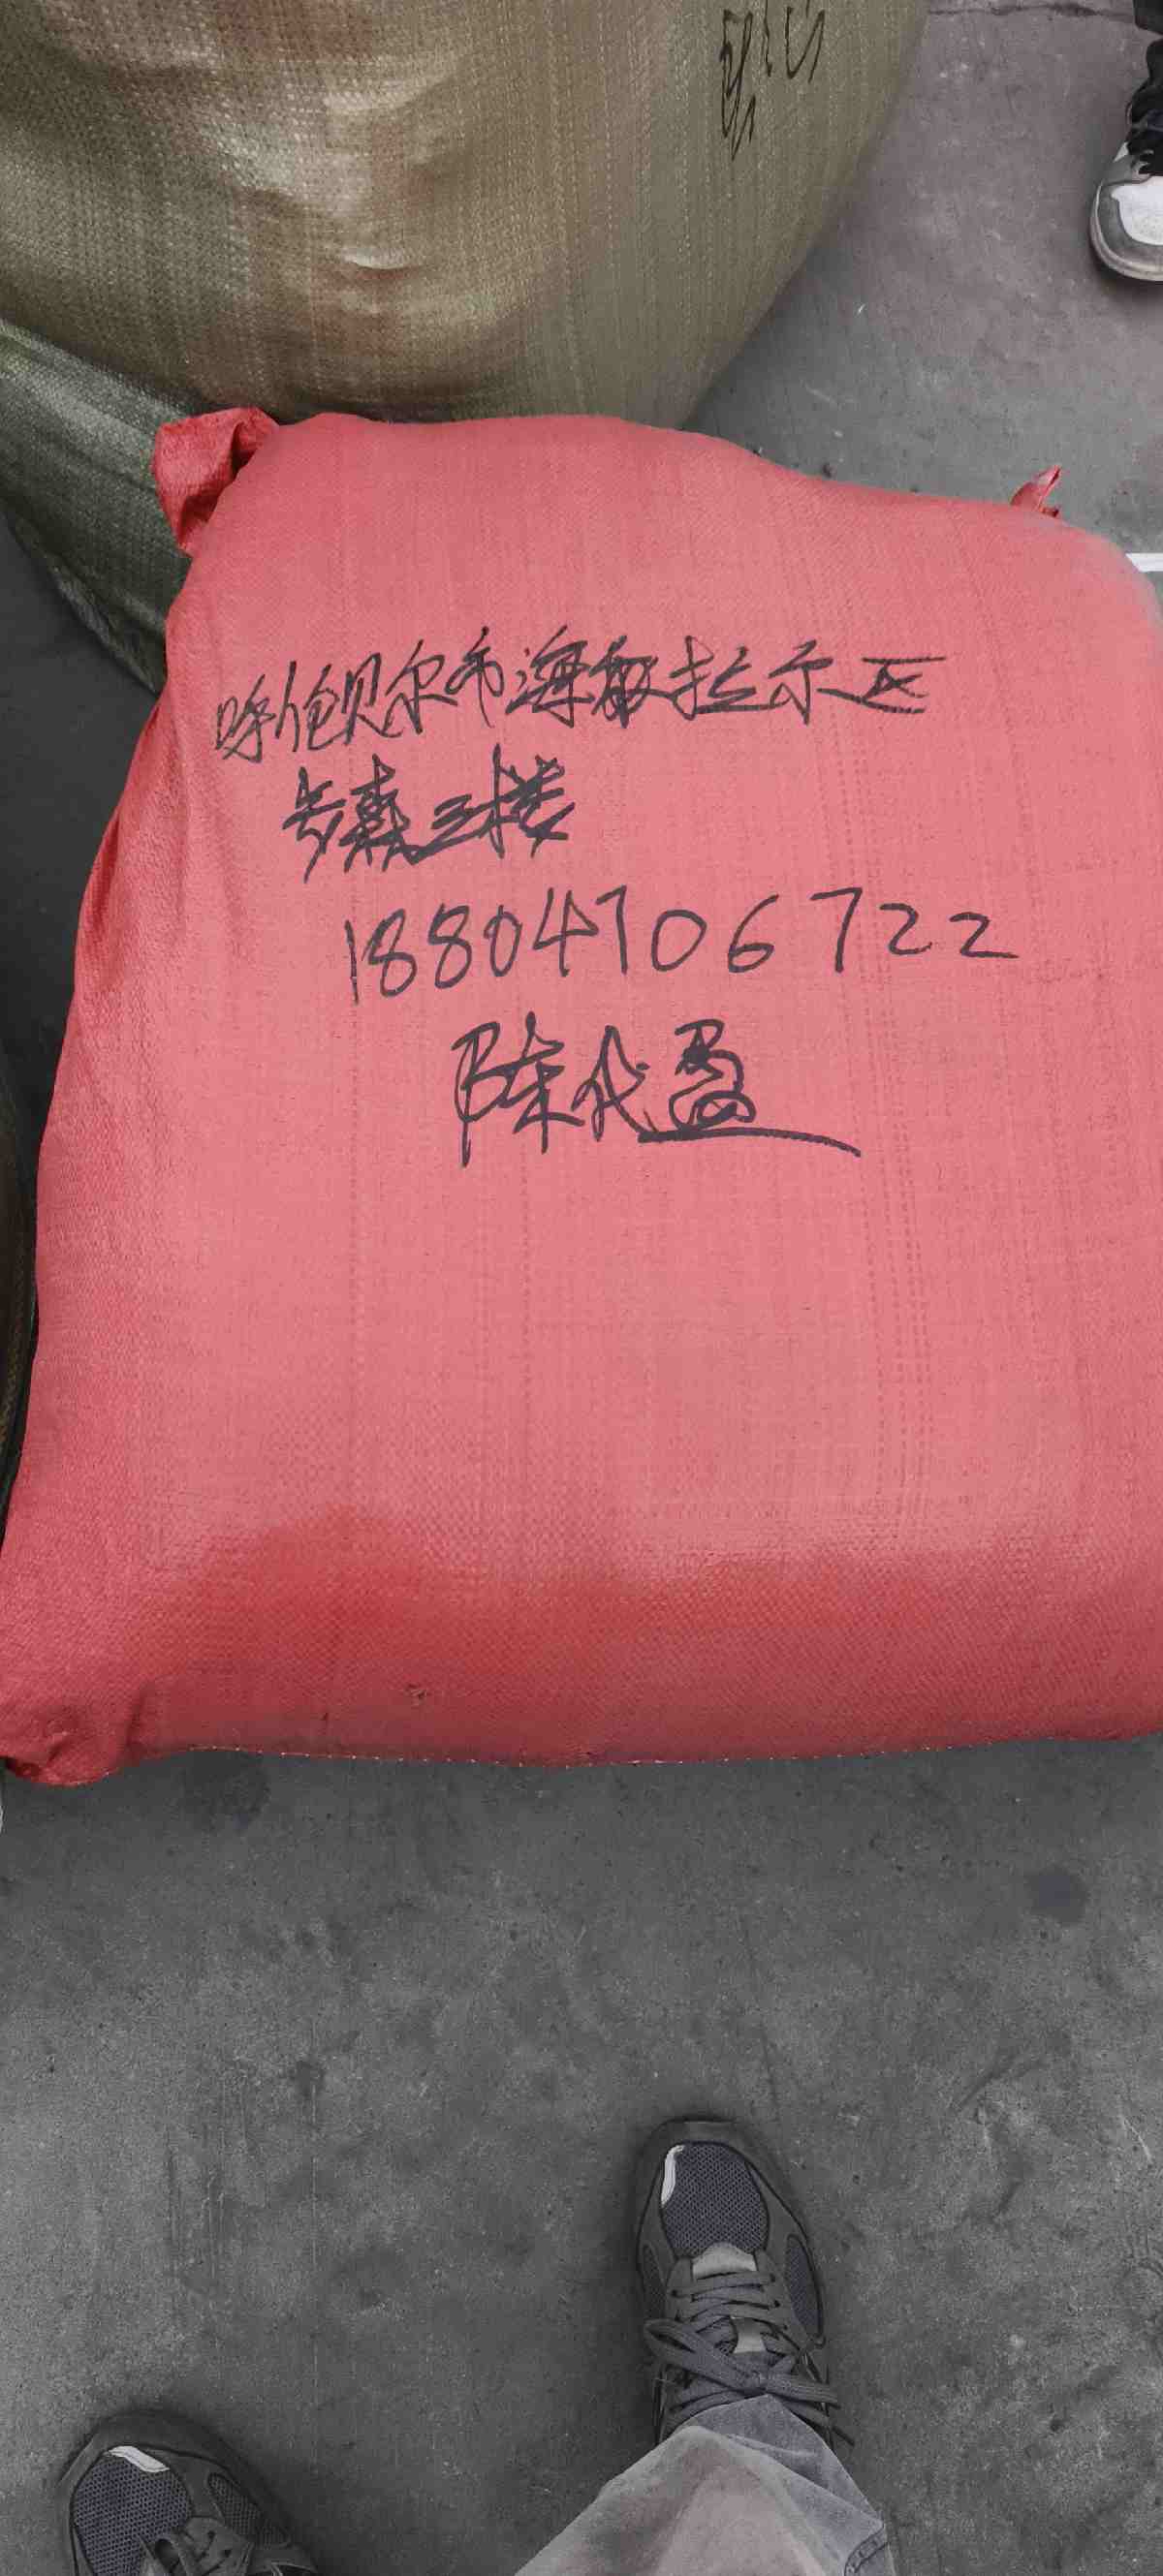 呼伦贝尔市海拉尔区
步森三楼
18804706722
陈代盈